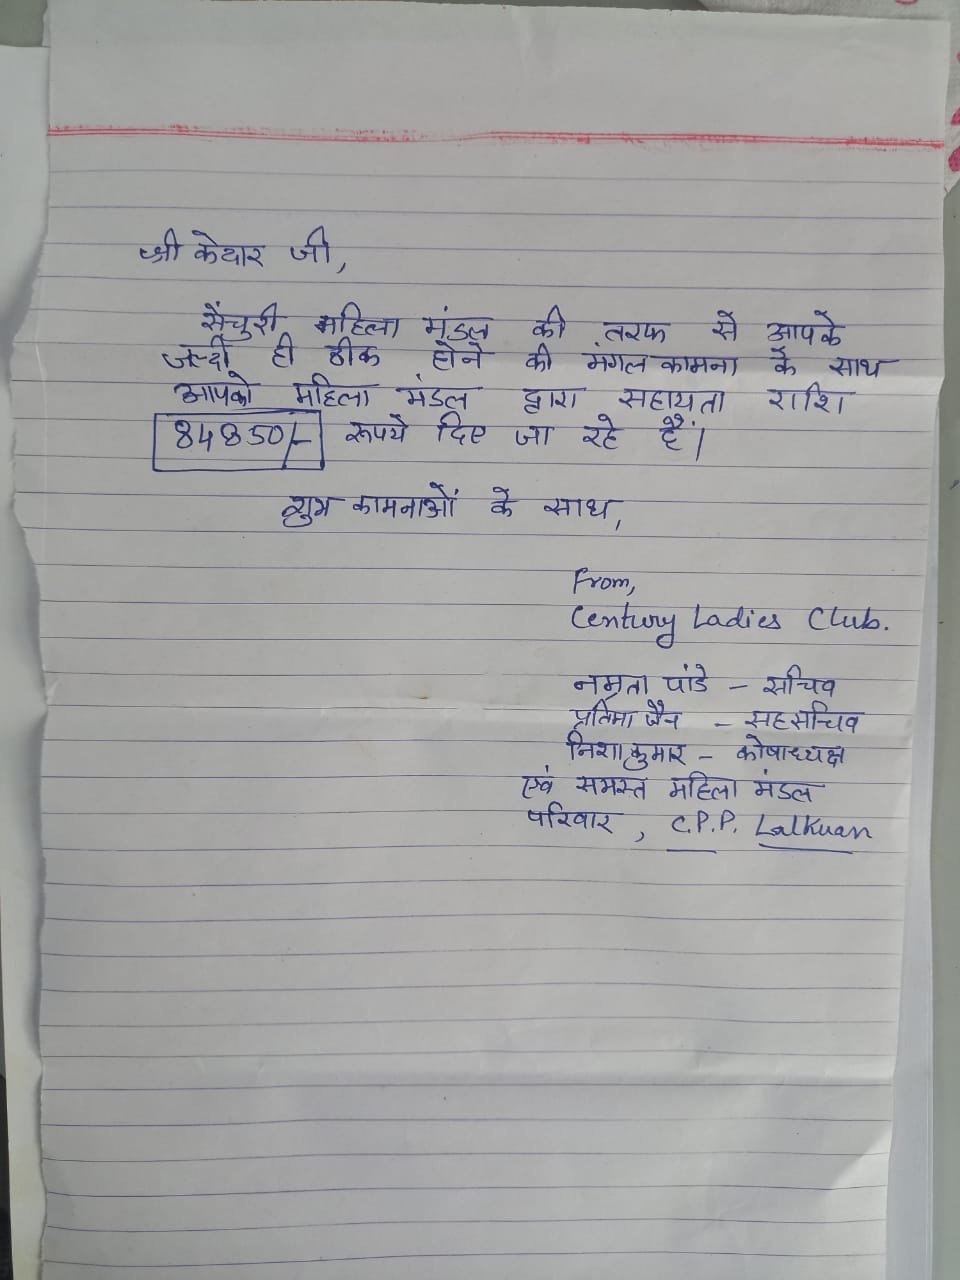 श्री केदार जी,
सेंचुरी महिला मंडल की तरफ से आपके
जल्दी ही ठीक होने की मंगल कामना के साथ
आपको महिला मंडल द्वारा सहायता राशि
84850/- रूपये दिए जा रहे हैं।
शुभ कामनाओं के साथ,
From,
Century Ladies Club.
नम्रता पांडे - सचिव
प्रतिमा जैन - सहसचिव
निशा कुमार - कोषाध्यक्ष
एवं समस्त महिला मंडल
परिवार, C.P.P. Lalkuan